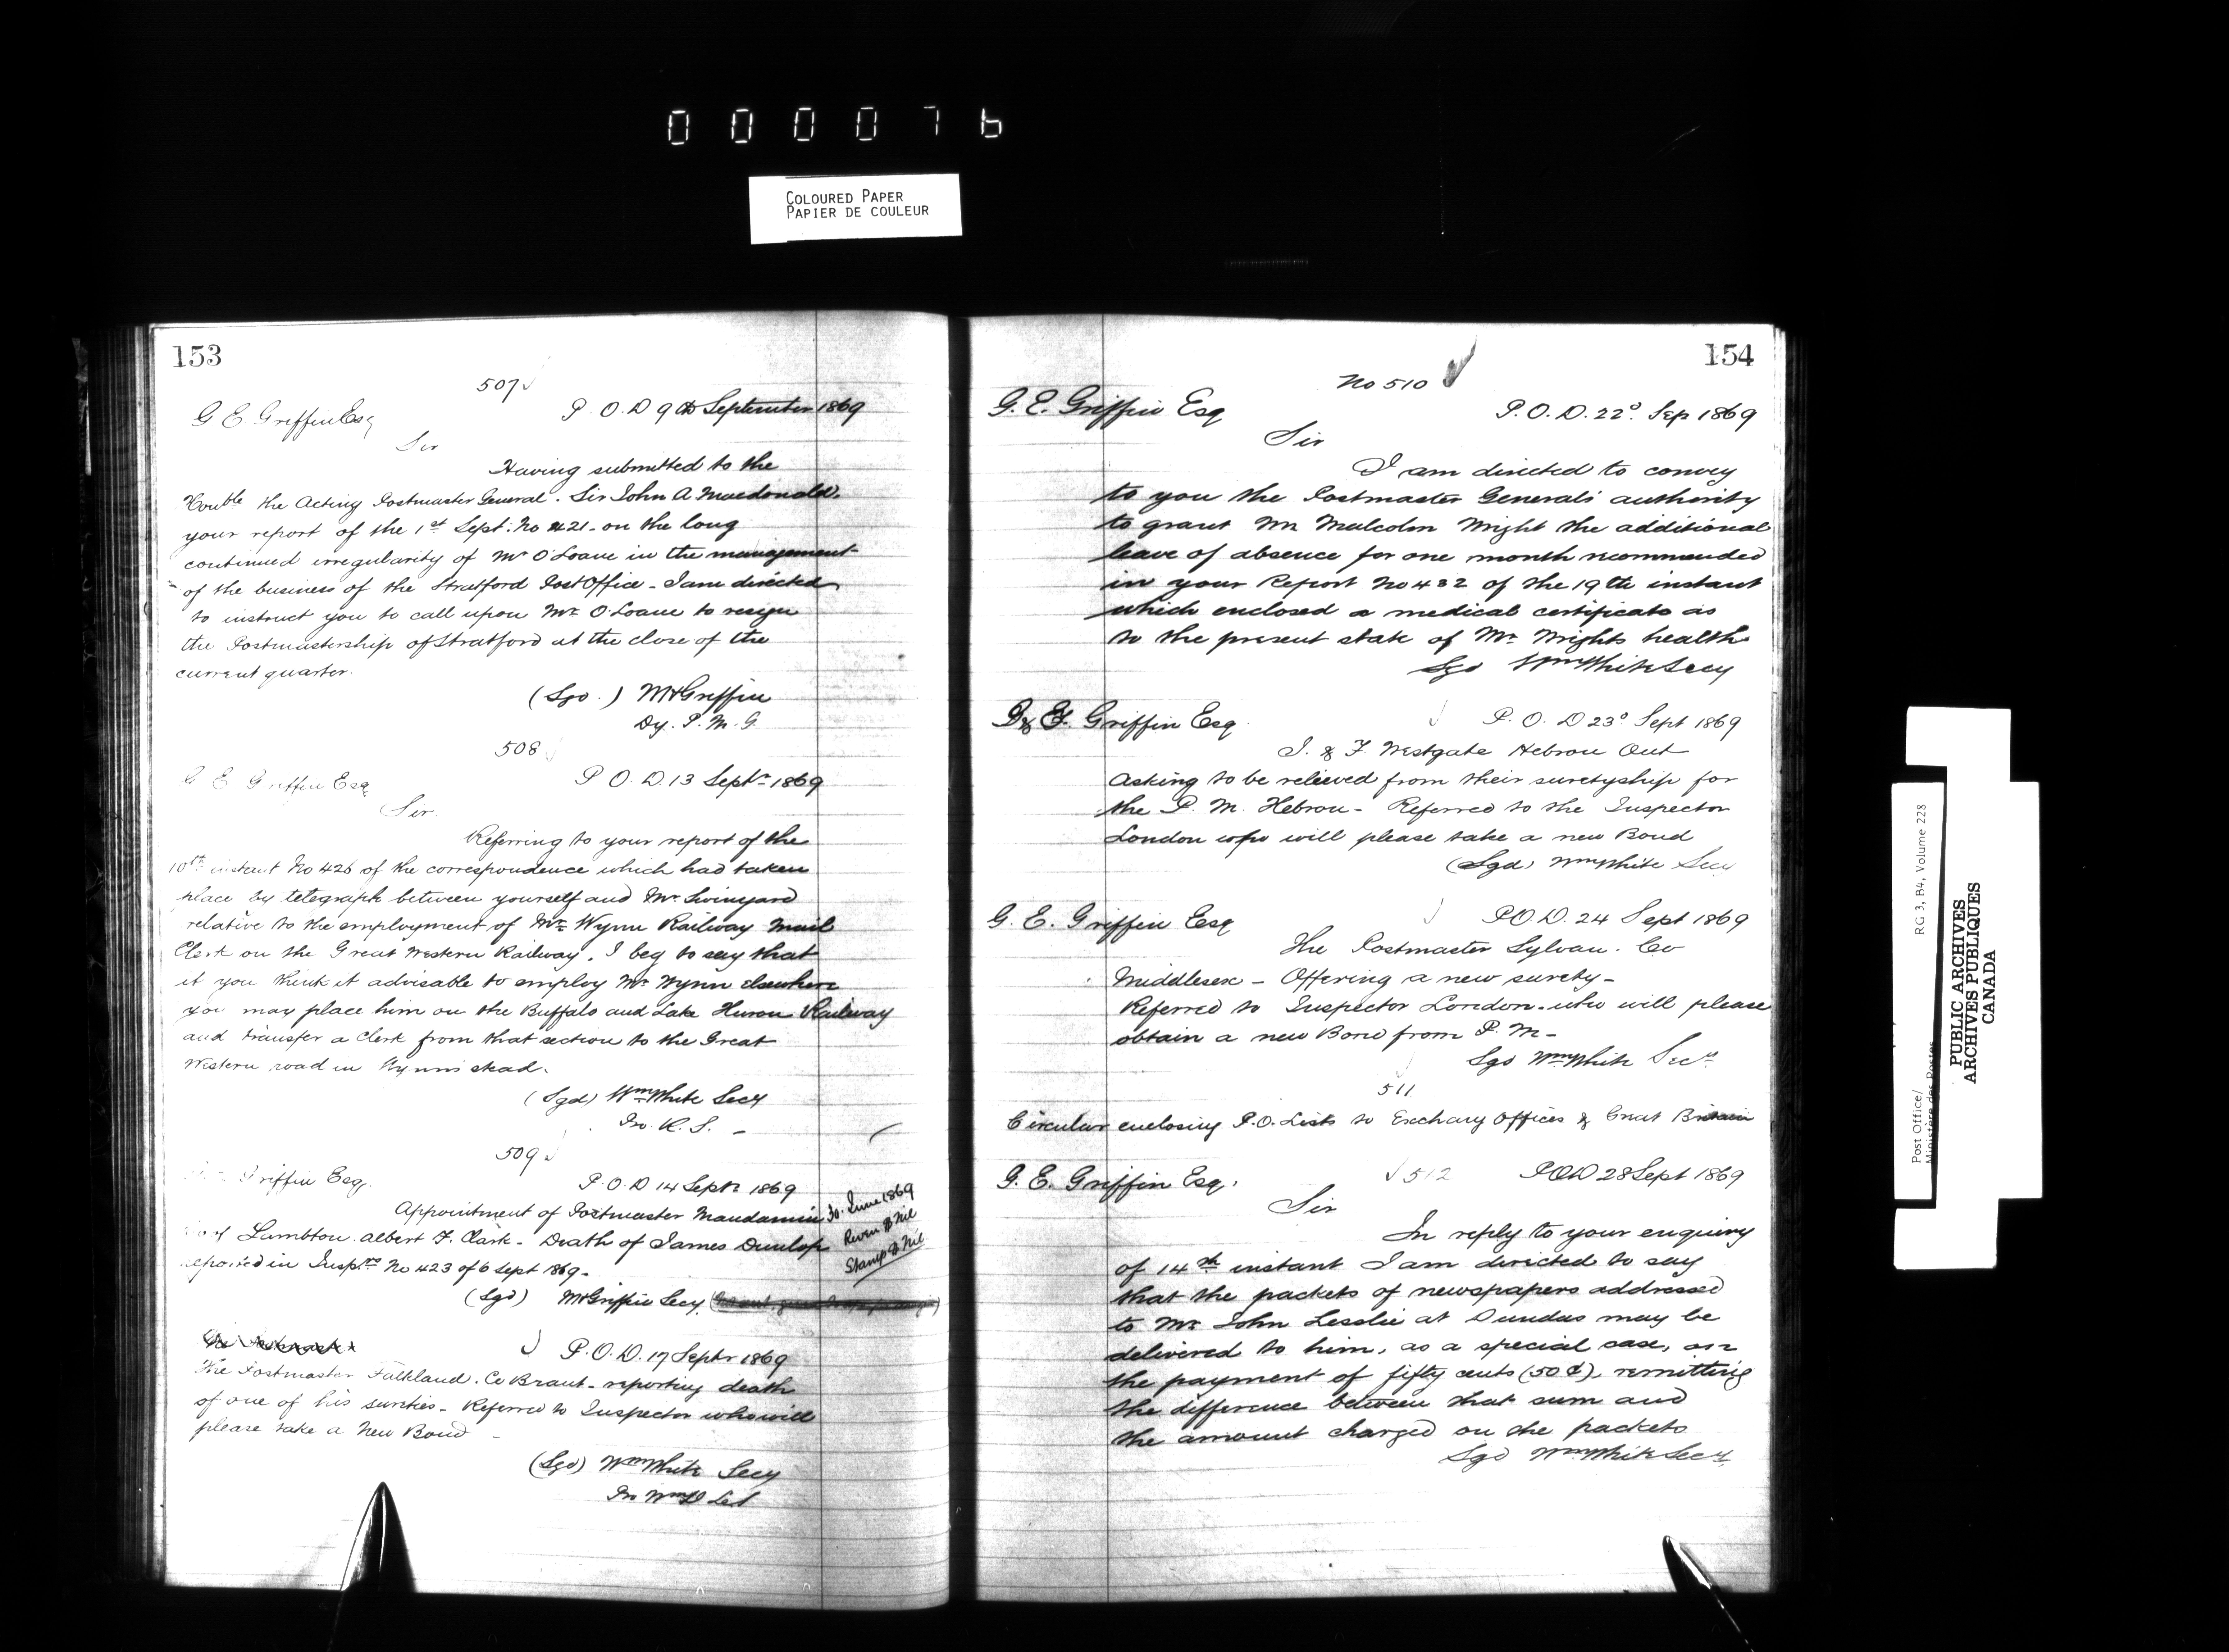 000076
COLOURED PAPER
PAPIER DE COULEUR
153
507
G E Griffin Esq
P. O. D 9th September 1869
Sir
Having submitted to the
Honble the Acting Postmaster General. Sir John A Macdonald.
your report of the 1st Sept. No 421 - on the long
continued irregularity of Mr O'Loane in the management
of the business of the Stratford Post Office - I am directed
to instruct you to call upon Mr. O'Loane to resign
the Postmastership of Stratford at the close of the
current quarter.
(Sgd.) WHGriffin
Dy. P. M. G
508
G E Griffin Esq
P O. D 13 Septr 1869
Sir
Referring to your report of the
10th instant No 426 of the correspondence which had taken
place by telegraph between yourself and Mr. Swinyard
relative to the employment of Mr. Wynn Railway Mail
Clerk on the Great Western Railway. I beg to say that
if you think it advisable to employ Mr Wynn elsewhere
you may place him on the Buffalo and Lake Huron Railway
and transfer a Clerk from that section to the Great
Western road in Wynn's stead.
(Sgd) Wm White Secy
509
Griffin Esq.
P. O. D 14 Septr 1869
Appointment of Postmaster Mandamin
Lambton. Albert F. Clark - Death of James Dunlop
reported in Insprs No 423 of 6 Sept 1869 -
30. June 1869
Reven $ Nil
Stamp $ Nil
(Sgd) WHGriffin Secy
P. O. D. 17 Septr 1869
The Postmaster Falkland. Co Brant - reporting death
of one of his sureties - Referred to Inspector who will
please take a New Bond -
(Sgd) Wm White Secy
154
No 510
G. E. Griffin Esq
P. O. D. 22d. Sep 1869
Sir
I am directed to convey
to you the Postmaster General's authority
to grant Mr Malcolm Wright the additional
leave of absence for one month recommended
in your Report No 432 of the 19th instant
which enclosed a medical certificate as
to the present state of Mr. Wrights health
Sgd Wm White Secy
G. E. Griffin Esq.
P. O. D 23d Sept 1869
J. & F. Westgate Hebron Ont
Asking to be relieved from their suretyship for
the P. M. Hebron - Referred to the Inspector
London who will please take a new Bond
(Sgd) Wm White Secy
G. E. Griffin Esq
P O D. 24 Sept 1869
The Postmaster Sylvan. Co
Middlesex - Offering a new surety -
Referred to Inspector London. who will please
obtain a new Bond from P. M -
Sgd Wm White Secy
511
Circular enclosing P. O. Lists to Exchang Offices & Great Britain
G. E. Griffin Esq.
512
P O D 28 Sept 1869
Sir
In reply to your enquiry
of 14th instant I am directed to say
that the packets of newspapers addressed
to Mr John Lesslie at Dundas may be
delivered to him, as a special case, on
the payment of fifty cents (50 ¢), remitting
the difference between that sum and
the amount charged on the packets
Sgd Wm White Secy
Post Office/
Ministère des Postes
RG 3, B4, Volume 228
PUBLIC ARCHIVES
ARCHIVES PUBLIQUES
CANADA